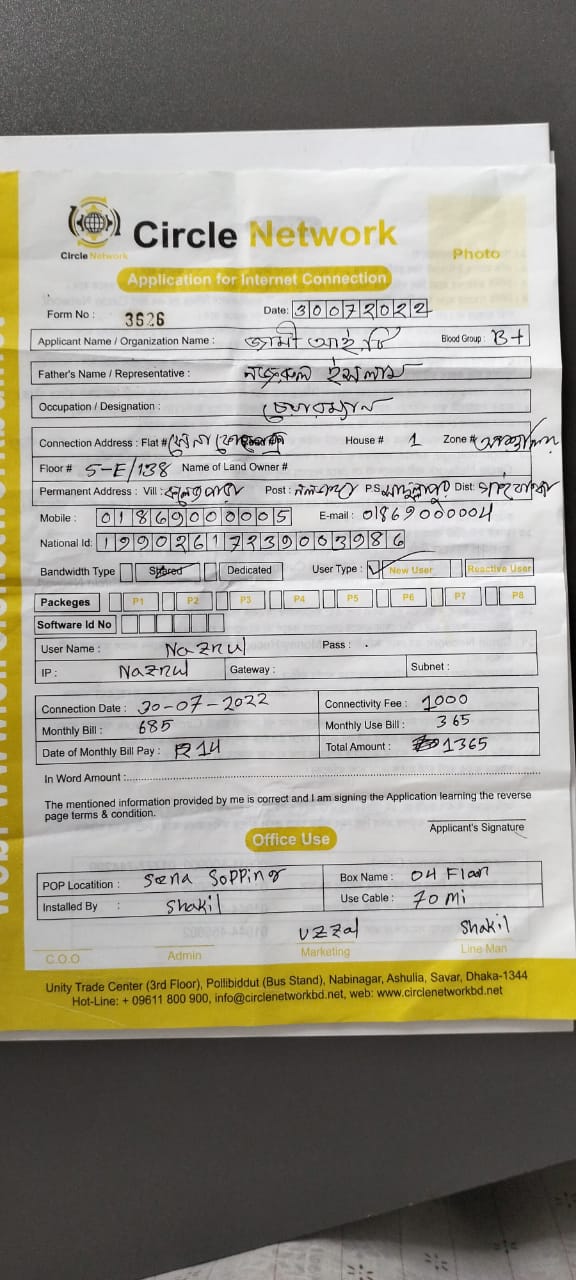 Circle Network
Circle Network
Photo
Application for Internet Connection
Form No : 3626 Date: 30072022
Applicant Name / Organization Name : জামী আই টি Blood Group : B+
Father's Name / Representative : নজরুল ইসলাম
Occupation / Designation :
Connection Address : Flat # House # 1 Zone #
Floor # 5-E/138 Name of Land Owner #
Permanent Address : Vill : Post : P.S Dist:
Mobile : 01869000005 E-mail : 01869000004
National Id: 19902617239003986
Bandwidth Type Shared Dedicated User Type : New User Reactive User
Packeges P1 P2 P3 P4 P5 P6 P7 P8
Software Id No
User Name : Naznul Pass :
IP : Naznul Gateway : Subnet :
Connection Date : 30-07-2022 Connectivity Fee : 1000
Monthly Bill : 685 Monthly Use Bill : 365
Date of Monthly Bill Pay : 14 Total Amount : 1365
In Word Amount :
The mentioned information provided by me is correct and I am signing the Application learning the reverse
page terms & condition.
Applicant's Signature
Office Use
POP Locatition : Sena Sopping Box Name : 04 Flan
Installed By : Shakil Use Cable : 70 Mi
uzzal Shakil
C.O.O Admin Marketing Line Man
Unity Trade Center (3rd Floor), Pollibiddut (Bus Stand), Nabinagar, Ashulia, Savar, Dhaka-1344
Hot-Line: + 09611 800 900, info@circlenetworkbd.net, web: www.circlenetworkbd.net